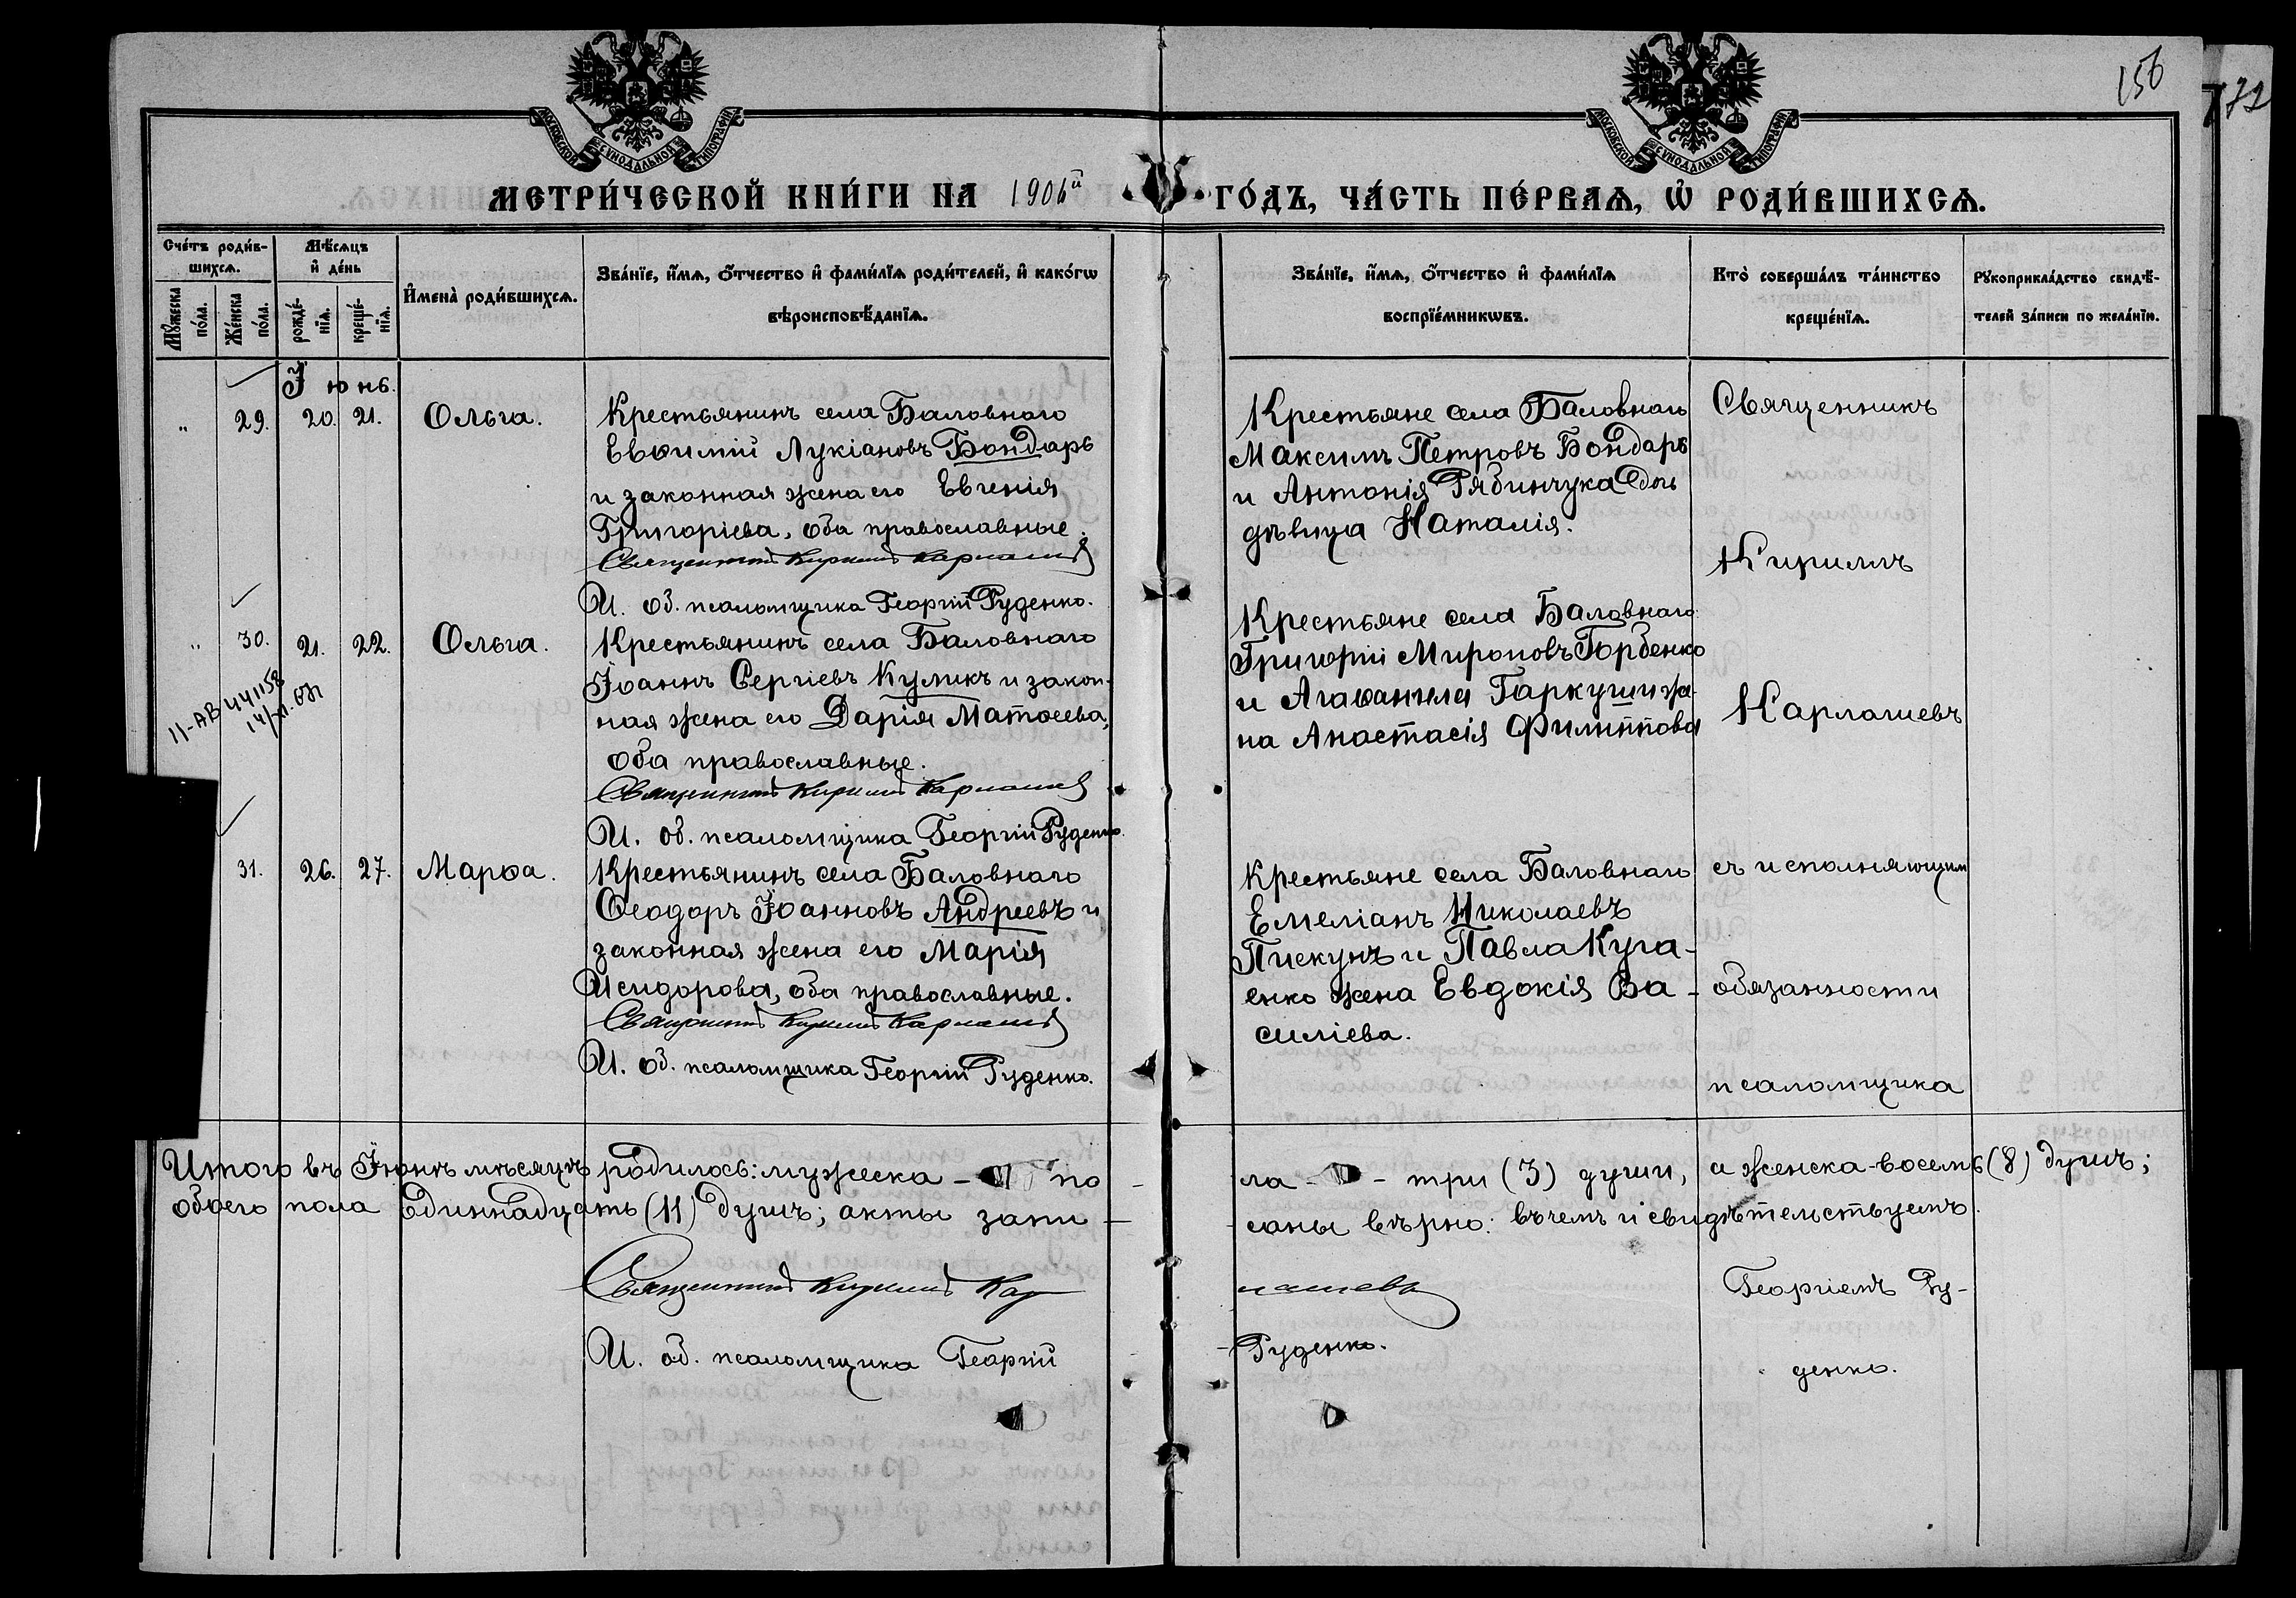 156
172
МОСКОВСКОЙ СУНОДАЛЬНОЙ ТИПОГРАФІИ
МОСКОВСКОЙ СУНОДАЛЬНОЙ ТИПОГРАФІИ
МЕТРИ́ЧЕСКОЙ КНИ́ГИ НА 1906й ГО́ДЪ, ЧА́СТЬ ПЕ́РВАѦ, Ѡ҆ РОДИ́ВШИХСѦ.
Сче́тъ роди́в-
шихсѧ.
Мꙋ́жеска по́ла.
Же́нска по́ла.
Мѣ́сѧцъ
и҆ де́нь
рожде́-
нїѧ.
креще́-
нїѧ.
И҆мена̀ роди́вшихсѧ.
Зва́нїе, и҆́мѧ, ѻ҆́тчество и҆ фами́лїѧ роди́телей, и҆ како́гѡ
вѣроисповѣ́данїѧ.
Зва́нїе, и҆́мѧ, ѻ҆́тчество и҆ фами́лїѧ
воспрїе́мникѡвъ.
Кто̀ соверша́лъ та́инство
креще́нїѧ.
Рꙋкоприкла́дство свидѣ́-
телей за́писи по жела́нїю.
Іюнь.
" 29. 20. 21. Ольга.
Крестьянинъ села Баловнаго
Евѳимій Лукіановъ Бондарь
и законная жена его Евгенія
Григоріева, оба православные.
Священникъ Кириллъ Карлашевъ
И. об. псаломщика Георгій Руденко.
Крестьяне села Баловнаго
Максимъ Петровъ Бондарь
и Антонія Рябинчука дочь
дѣвица Наталія.
" 30. 21. 22. Ольга.
11-АВ 441158
Крестьянинъ села Баловнаго
Іоаннъ Сергіевъ Куликъ и закон-
ная жена его Дарія Матѳеева,
оба православные.
Священникъ Кириллъ Карлашевъ
И. об. псаломщика Георгій Руденко.
Крестьяне села Баловнаго
Григорій Мироновъ Горбенко
и Агаѳангела Гаркуши же-
на Анастасія Филиппова
31. 26. 27. Марѳа.
Крестьянинъ села Баловнаго
Ѳеодоръ Іоанновъ Андреевъ и
законная жена его Марія
Исидорова, оба православные.
Священникъ Кириллъ Карлашевъ
И. об. псаломщика Георгій Руденко.
Крестьяне села Баловнаго
Емеліанъ Николаевъ
Пискунъ и Павла Куга-
енко жена Евдокія Ва-
силіева.
Священникъ
Кириллъ
Карлашевъ
съ исполняющим
обязанности
псаломщика
Георгіемъ Ру-
денко.
Итого въ Іюнѣ мѣсяцѣ родилось: мужеска - по - ла - три (3) души, а женска - восемь (8) душъ;
обоего пола Единнадцать (11) душъ; акты запи - саны вѣрно: въ чемъ и свидѣтельствуемъ.
Священникъ Кириллъ Кар лашевъ
И. об. псаломщика Георгій Руденко.